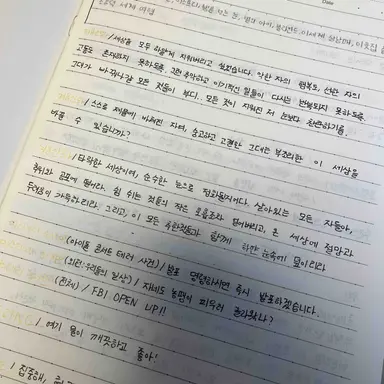 Date
/ 세상을 모두 하얗게 지워버리고 싶었습니다. 약한 자의 행복도, 선한 자의
고통도 존재하지 못하도록. 그런 추악하고 이기적인 일들이 다시는 반복되지 못하도록.
그대가 바꿔나갈 모든 것들이 부디.. 모든 것이 지워진 저 눈보다 찬란하기를.
/ 스스로 제물에 바쳐진 자여, 숭고하고 고결한 그대는 부조리한 이 세상을
바꿀 수 있습니까?
/ 타락한 세상이여, 순수한 눈으로 정화될지어다. 살아있는 모든 자들아,
추위와 공포에 떨어라. 숨 쉬는 것들의 작은 호흡조차 얼어버리고, 온 세상에 절망과
두려움이 가득하리라. 그리고, 이 모든 추한것들과 함께 하얀 눈속에 묻히리라
(아이돌 콘서트 테러 사건) / 발포 명령하시면 즉시 발포하겠습니다.
(외전:우리들의 일상) / 자네도 농땡이 피우러 온거였나?
(전체) / FBI OPEN UP!!
/ 여기 물이 깨끗하고 좋아!
/ 집중해,